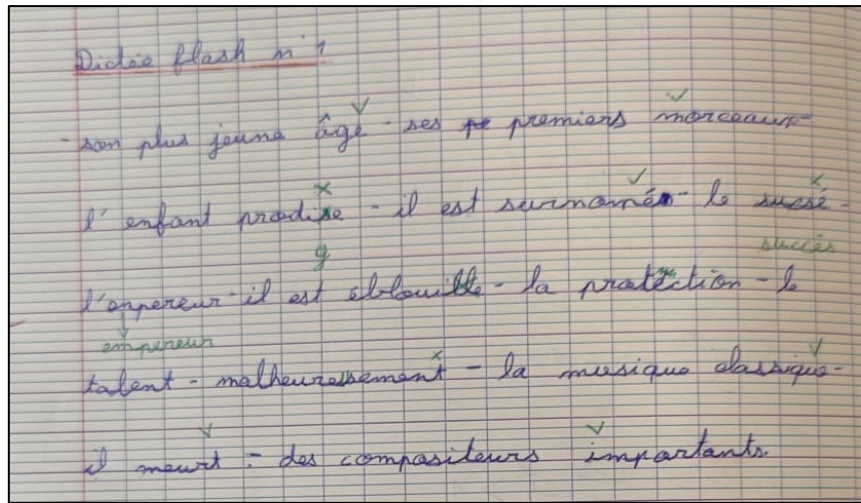 Dictée flash n°1
- son plus jeune âge - ses premiers morceaux -
l'enfant prodise - il est surnomé - le sucsé -
g succès
l'enpereur - il est éblouille - la protection - le
empereur
talent - malheuresement - la musique classique -
il meurt - des compositeurs importants.